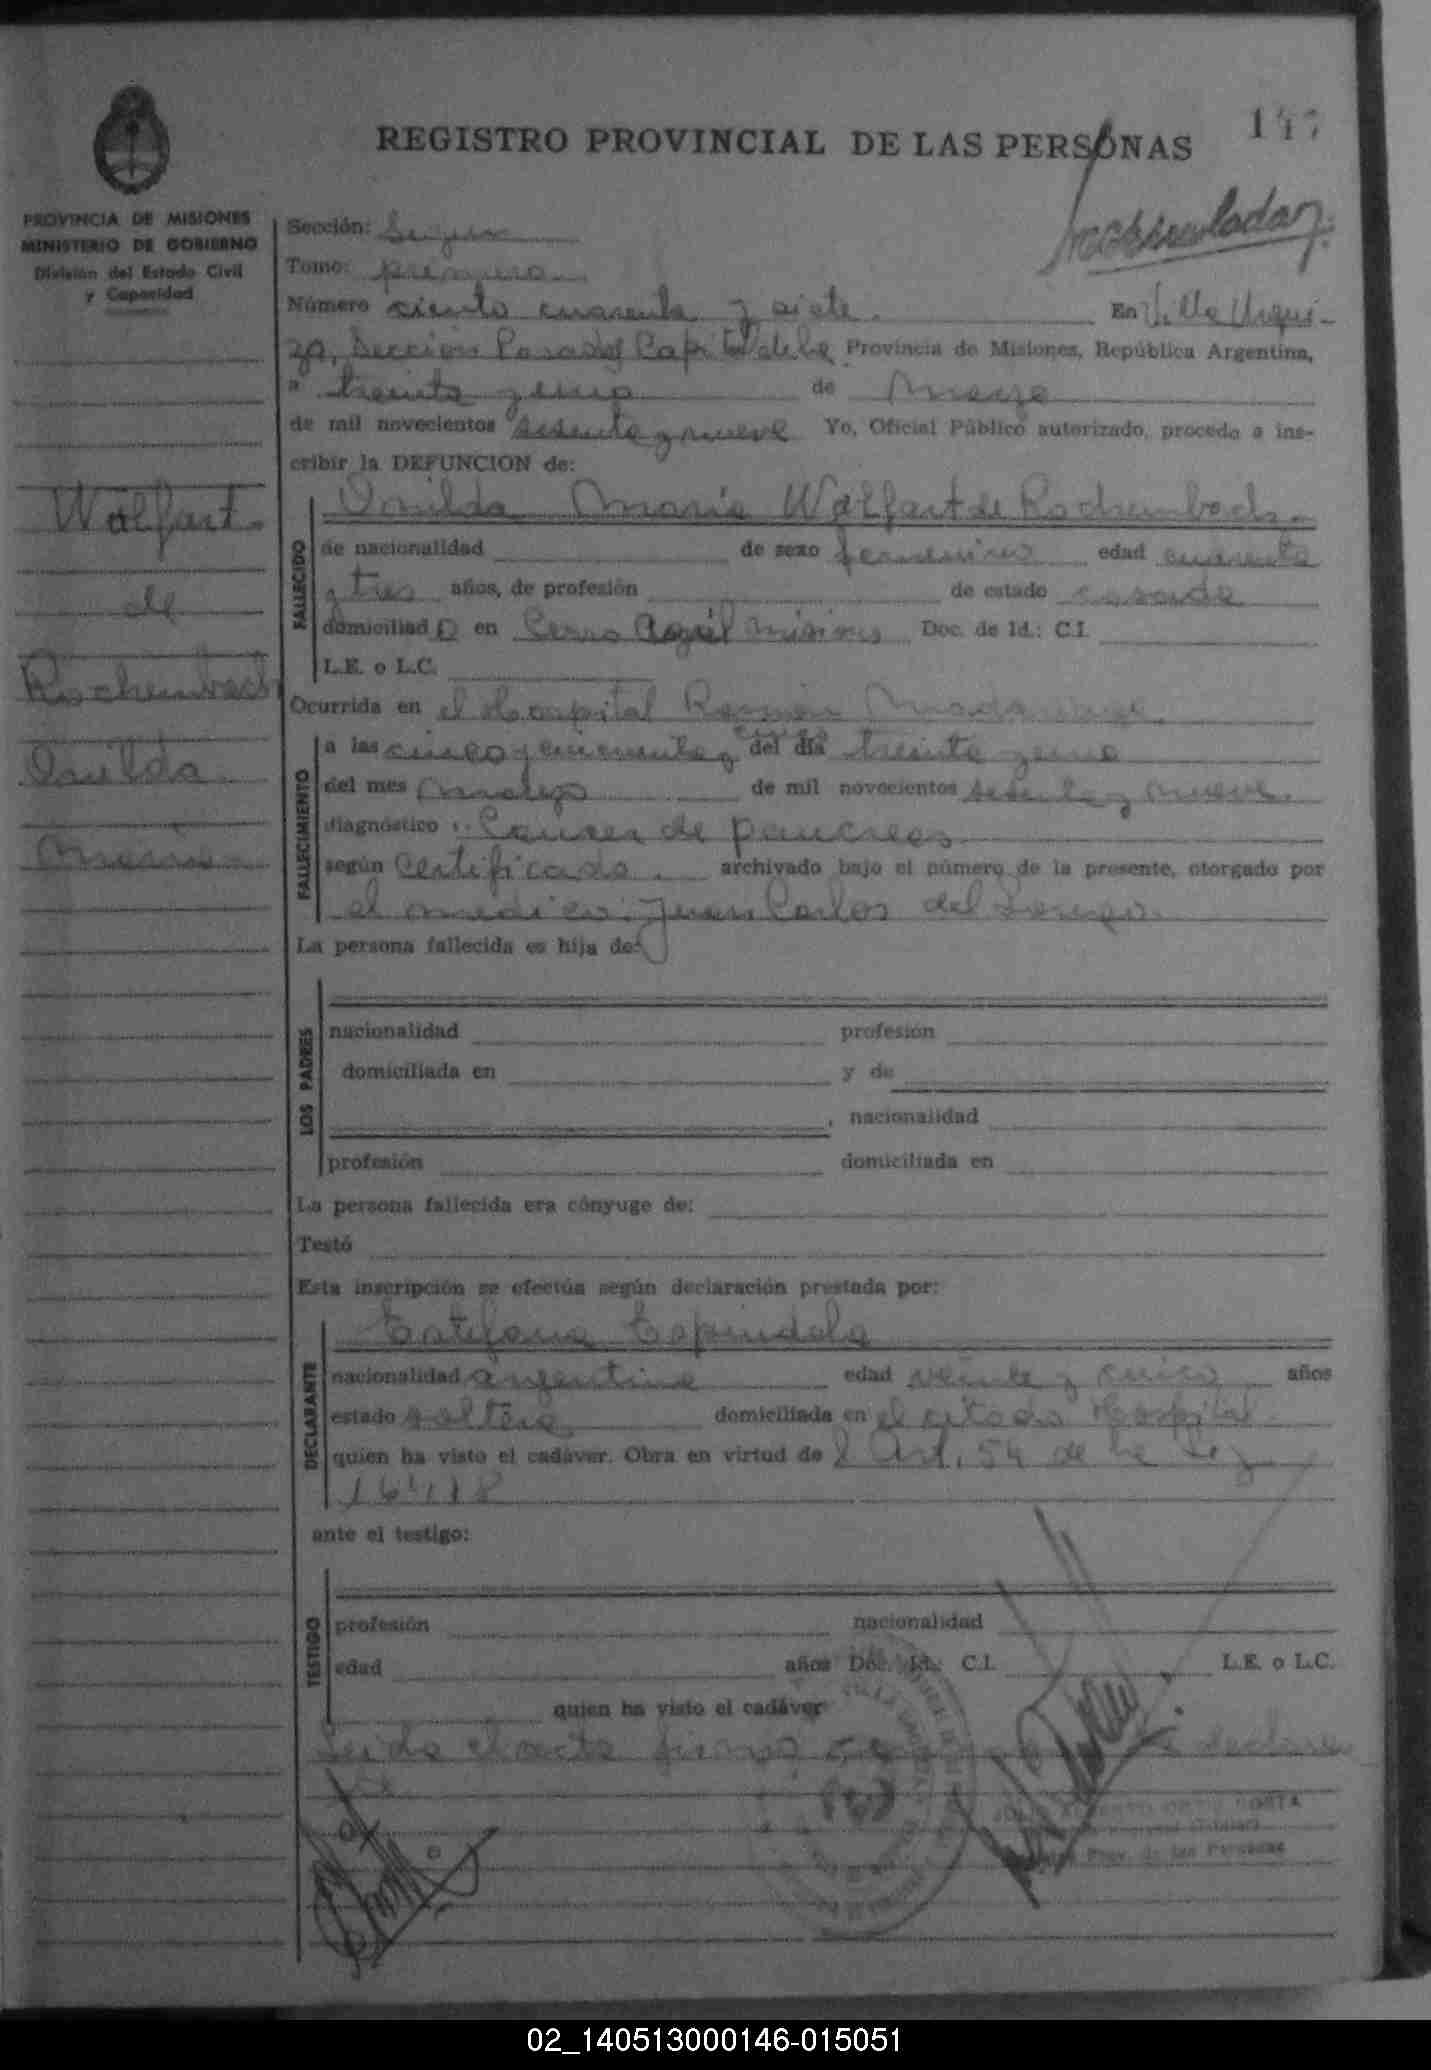 147
REGISTRO PROVINCIAL DE LAS PERSONAS
PROVINCIA DE MISIONES
MINISTERIO DE GOBIERNO
División del Estado Civil
y Capacidad
Wolfart
de
Rochembach
Onilda
María
Sección:
Tomo: primero
Número ciento cuarenta y siete. En Villa Urqui-
za, Sección Posadas Capital de la Provincia de Misiones, República Argentina,
a treinta y uno de Marzo
de mil novecientos sesenta y nueve Yo, Oficial Público autorizado, procedo a ins-
cribir la DEFUNCION de:
Onilda María Wolfart de Rochembach.
FALLECIDO
de nacionalidad de sexo femenino edad cuarenta
y tres años, de profesión de estado casada
domiciliad o en Cerro Azul Misiones Doc. de Id.: C.I.
L.E. o L.C.
Ocurrida en el Hospital Ramón Madariaga
FALLECIMIENTO
a las cinco y cincuenta y cinco del día treinta y uno
del mes Marzo de mil novecientos sesenta y nueve.
diagnóstico: Cancer de pancreas
según Certificado. archivado bajo el número de la presente, otorgado por
el medico: Juan Carlos del
La persona fallecida es hija de:
LOS PADRES
nacionalidad profesión
domiciliada en y de
, nacionalidad
profesión domiciliada en
La persona fallecida era cónyuge de:
Testó
Esta inscripción se efectúa según declaración prestada por:
Estefana Espindola
DECLARANTE
nacionalidad argentina edad veinte y cinco años
estado soltera domiciliada en el citado Hospital.
quien ha visto el cadáver. Obra en virtud de l Art. 54 de la Ley
ante el testigo:
TESTIGO
profesión nacionalidad
edad años Doc. Id.: C.I. L.E. o L.C.
quien ha visto el cadáver
Leida el acta firma declaran
te.
02_140513000146-015051